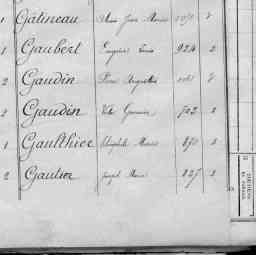 1 Gatineau Jean Marie 2
1 Gaubert Eugène Louis 924 2
2 Gaudin Pierre Augustin 2
2 Gaudin Victor Germain 702 2
1 Gaulthier Théophile Marie 870 2
2 Gautier Joseph Marie 827 2